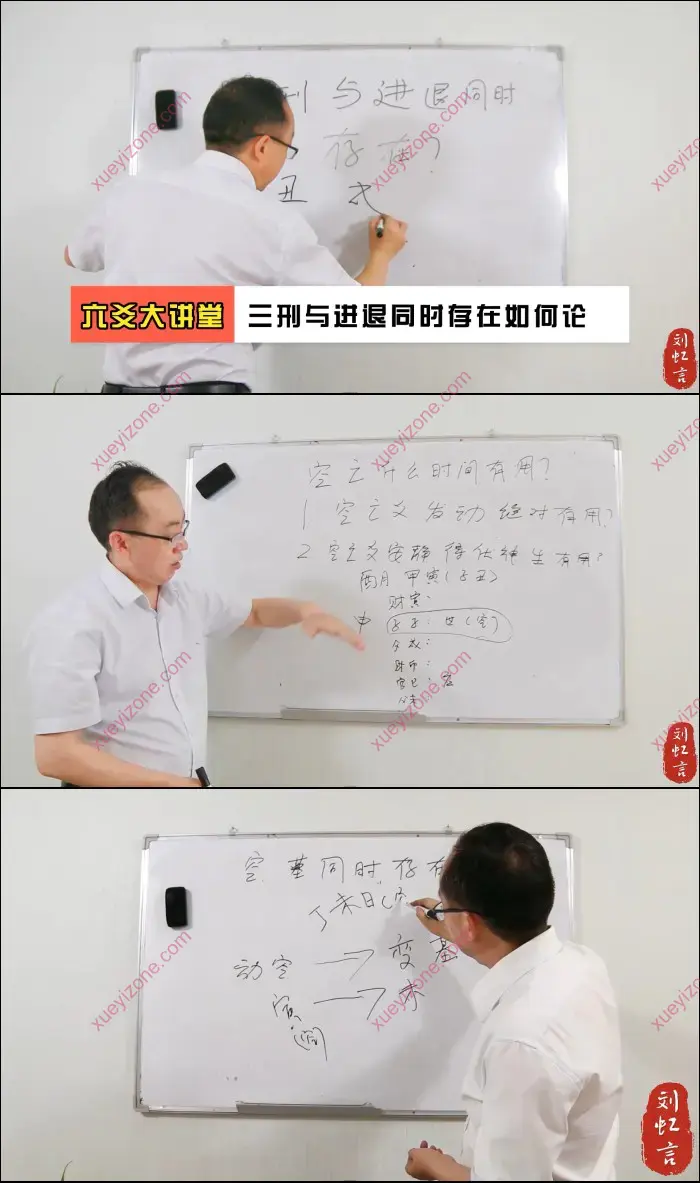 刑与进退同时
存在?
丑 戌
六爻大讲堂 三刑与进退同时存在如何论
刘虹言
空亡什么时间有用?
1 空亡爻发动绝对有用?
2 空亡爻安静得伏神生有用?
酉月 甲寅(子丑)
财寅:
申 子子:世(空)
父戌:
财卯:
官巳:应
父未:
刘虹言
空墓同时存在
丁未日
动空 → 变墓
寅 → 未
刘虹言
xueyizone.com